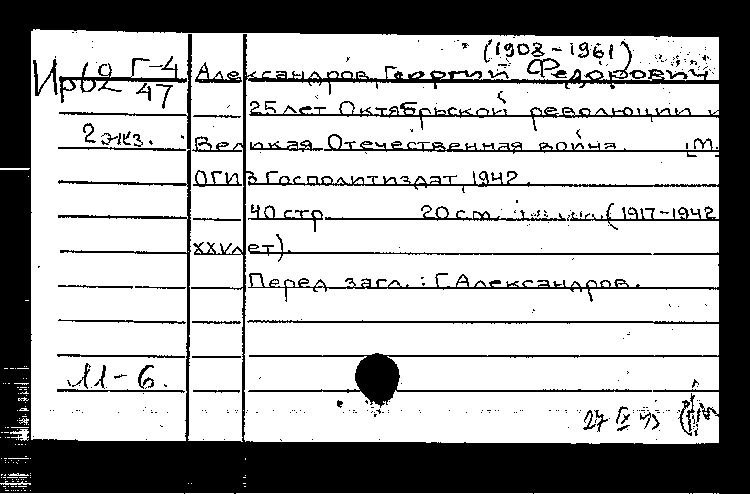 (1908-1961)
Ирб2 Г-4/47 Александров, Георгий Федорович
25 лет Октябрьской революции и
2 экз. Великая Отечественная война. [М.
ОГИЗ Госполитиздат, 1942.
40 стр. 20 см. (1917-1942
XXVлет).
Перед загл.: Г. Александров.
11-6.
27 IX